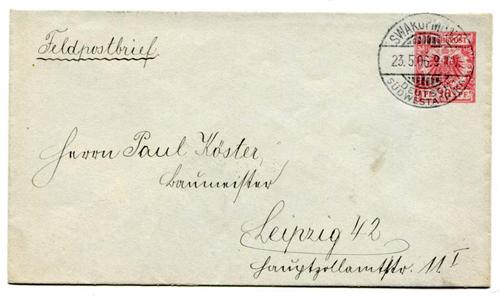 Feldpostbrief
SWAKOPMUND
23.5.06.9
DEUTSCH-
SÜDWESTAFRIKA
Herrn Paul Köster,
Baumeister
Leipzig 42
Hauptzollamtstr. 11 I